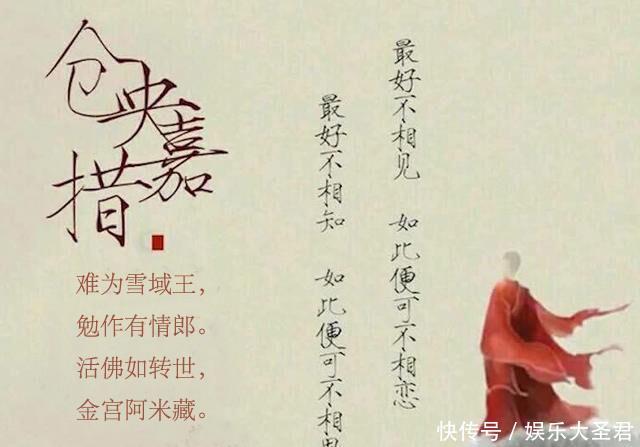 仓央嘉措
最好不相见 如此便可不相恋
最好不相知 如此便可不相思
难为雪域王，
勉作有情郎。
活佛如转世，
金宫阿米藏。
快传号/娱乐大圣君